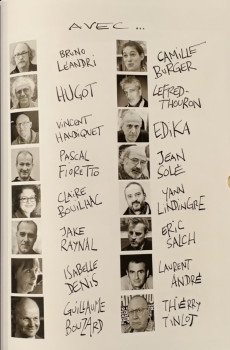 AVEC...
BRUNO
LÉANDRI
HUGOT
VINCENT
HAUDIQUET
PASCAL
FIORETTO
CLAIRE
BOUILHAC
JAKE
RAYNAL
ISABELLE
DENIS
GUILLAUME
BOUZARD
CAMILLE
BURGER
LEFRED-
THOURON
EDIKA
JEAN
SOLÉ
YANN
LINDINGRE
ERIC
SALCH
LAURENT
ANDRÉ
THIERRY
TINLOT